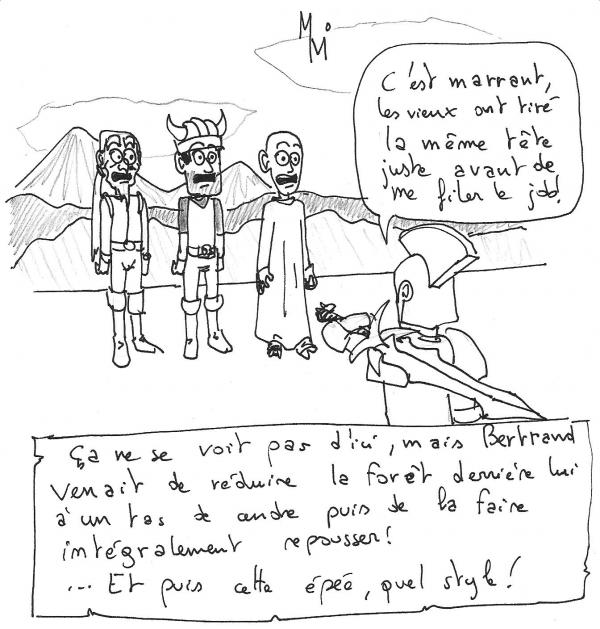 M M
C'est marrant,
les vieux ont tiré
la même tête
juste avant de
me filer le job!
Ça ne se voit pas d'ici, mais Bertrand
venait de réduire la forêt derrière lui
à un tas de cendre puis de la faire
intégralement repousser!
... Et puis cette épée, quel style!